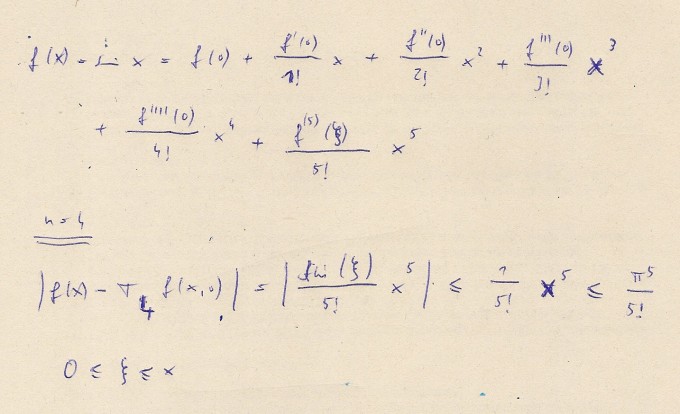 f(x) = sin x = f(0) + f'(0)/1! x + f''(0)/2! x² + f'''(0)/3! x³
+ f''''(0)/4! x⁴ + f⁽⁵⁾(ξ)/5! x⁵
n=4
|f(x) - T₄ f(x,0)| = |sin(ξ)/5! x⁵| ≤ 1/5! x⁵ ≤ π⁵/5!
0 ≤ ξ ≤ x